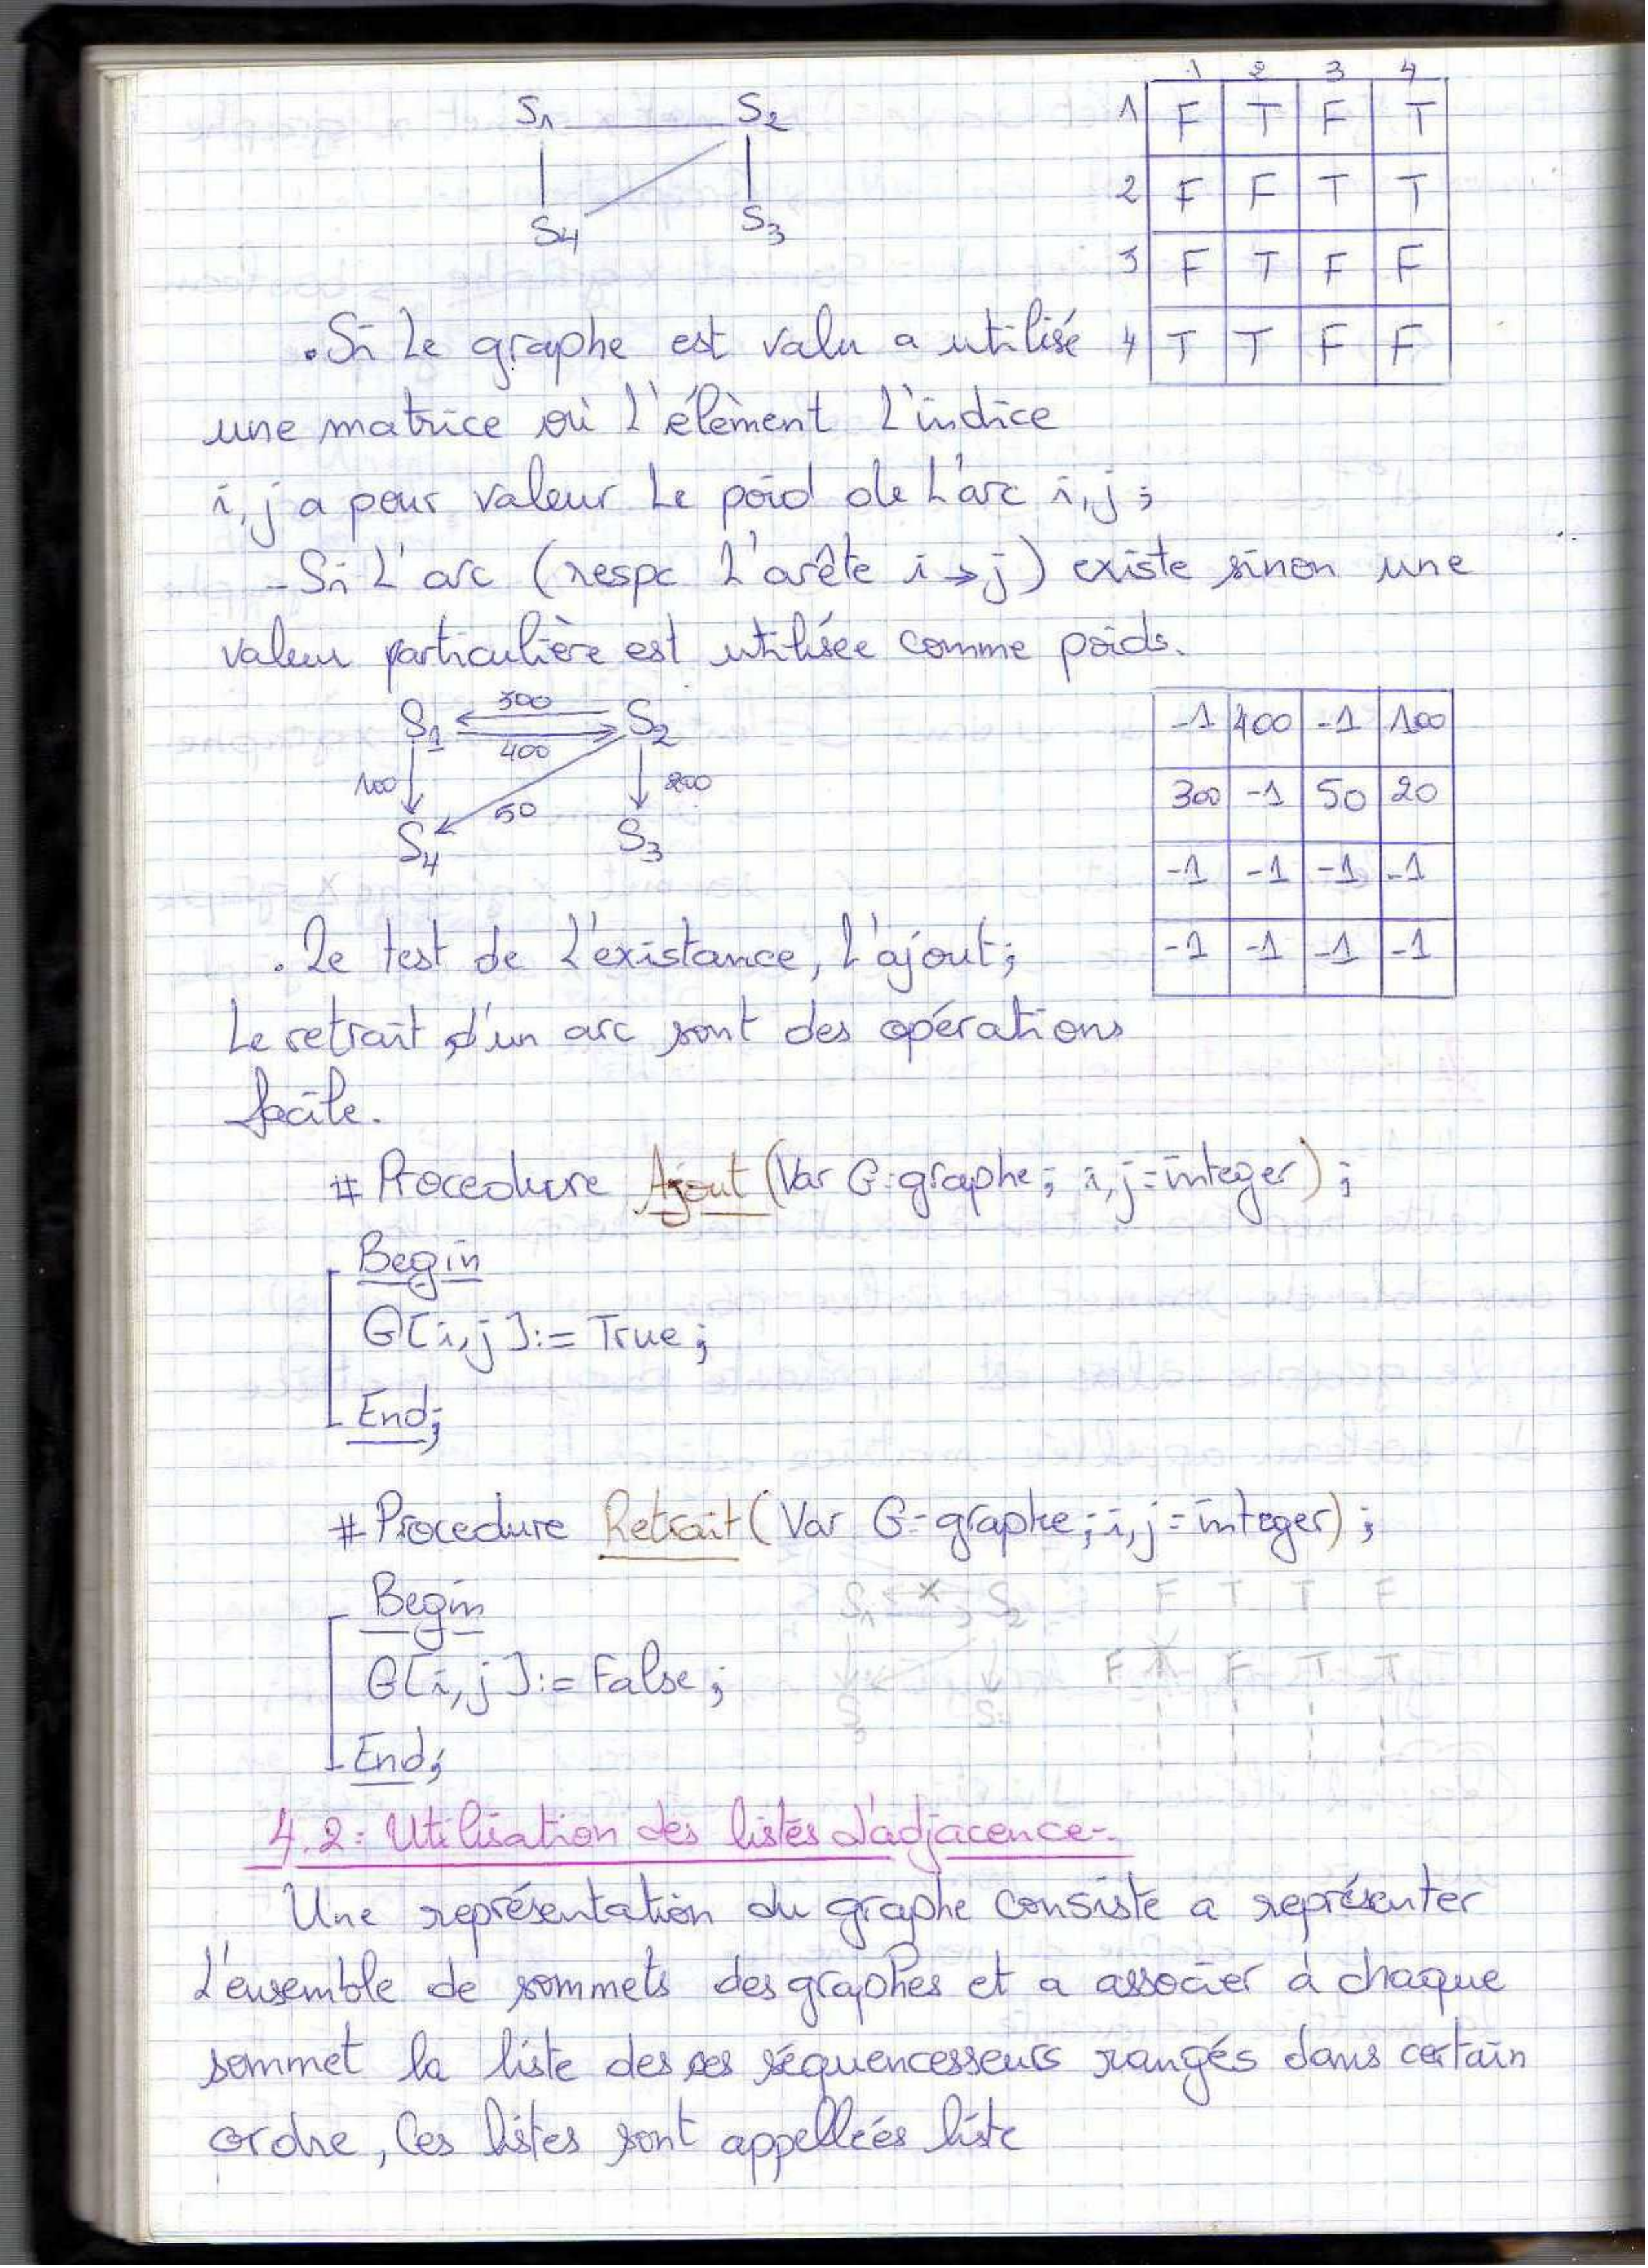 S1 S2
S4 S3
1 2 3 4
1 F T F T
2 F F T T
3 F T F F
4 T T F F
.Si Le graphe est valu a utilisé
une matrice où l'élèment L'indice
i,j a pour valeur Le poid de L'arc i,j ;
- Si L'arc (respc L'arête i→j) existe sinon une
valeur particulière est utilisée comme poids.
300
S1 S2
400
100 200
50
S4 S3
-1 400 -1 100
300 -1 50 20
-1 -1 -1 -1
-1 -1 -1 -1
. Le test de L'existance, L'ajout;
Le retrait d'un arc sont des opérations
facile.
# Procedure Ajout (Var G:graphe; i,j:integer) ;
Begin
G[i,j]:= True ;
End;
# Procedure Retrait (Var G:graphe; i,j:integer) ;
Begin
G[i,j]:= False ;
End;
S1 x S2 F T T F
F F T T
4.2: Utilisation des listes d'adjacence:
Une représentation du graphe consiste a représenter
L'ensemble de sommets des graphes et a associer à chaque
sommet la liste des ses séquencesseurs rangés dans certain
ordre, Ces listes sont appelleés liste